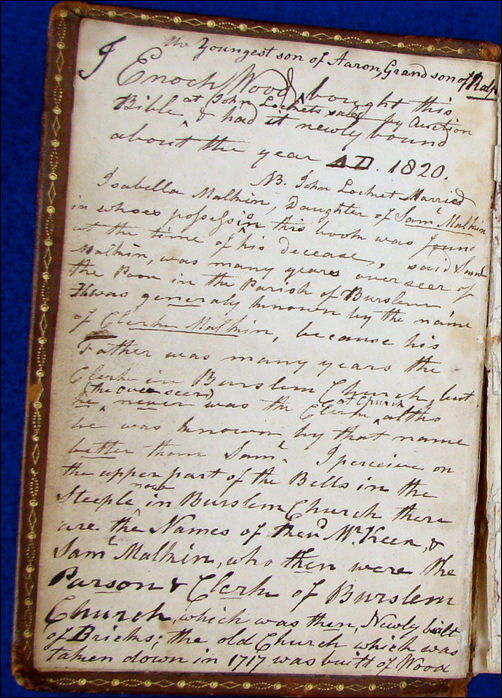 the Youngest son of Aaron, Grandson of Ralp
I Enoch Wood bought this
at John Lockets sale by Auction
Bible, I had it newly bound
about the year AD. 1820.
NB. John Locket Married
Isabella Malkin, Daughter of Saml Malkin
in whoes possession this book was found
at the time of his decease, said Saml
Malkin, was many years overseer of
the Poor in the Parish of Burslem
It was generaly known by the name
of Clerk Malkin, because his
Father was many years the
Clerk in Burslem Church, but
(the overseer) at Church
he never was the Clerk, altho
he was known by that name
better than Saml. I perceive on
the upper part of the Bells in the
Steeple in Burslem Church there
are the Names of the Mr Keen, &
Saml Malkin, who then were the
Parson & Clerk of Burslem
Church, which was then, Newly built
of Bricks; the old Church which was
taken down in 1717 was built of Wood